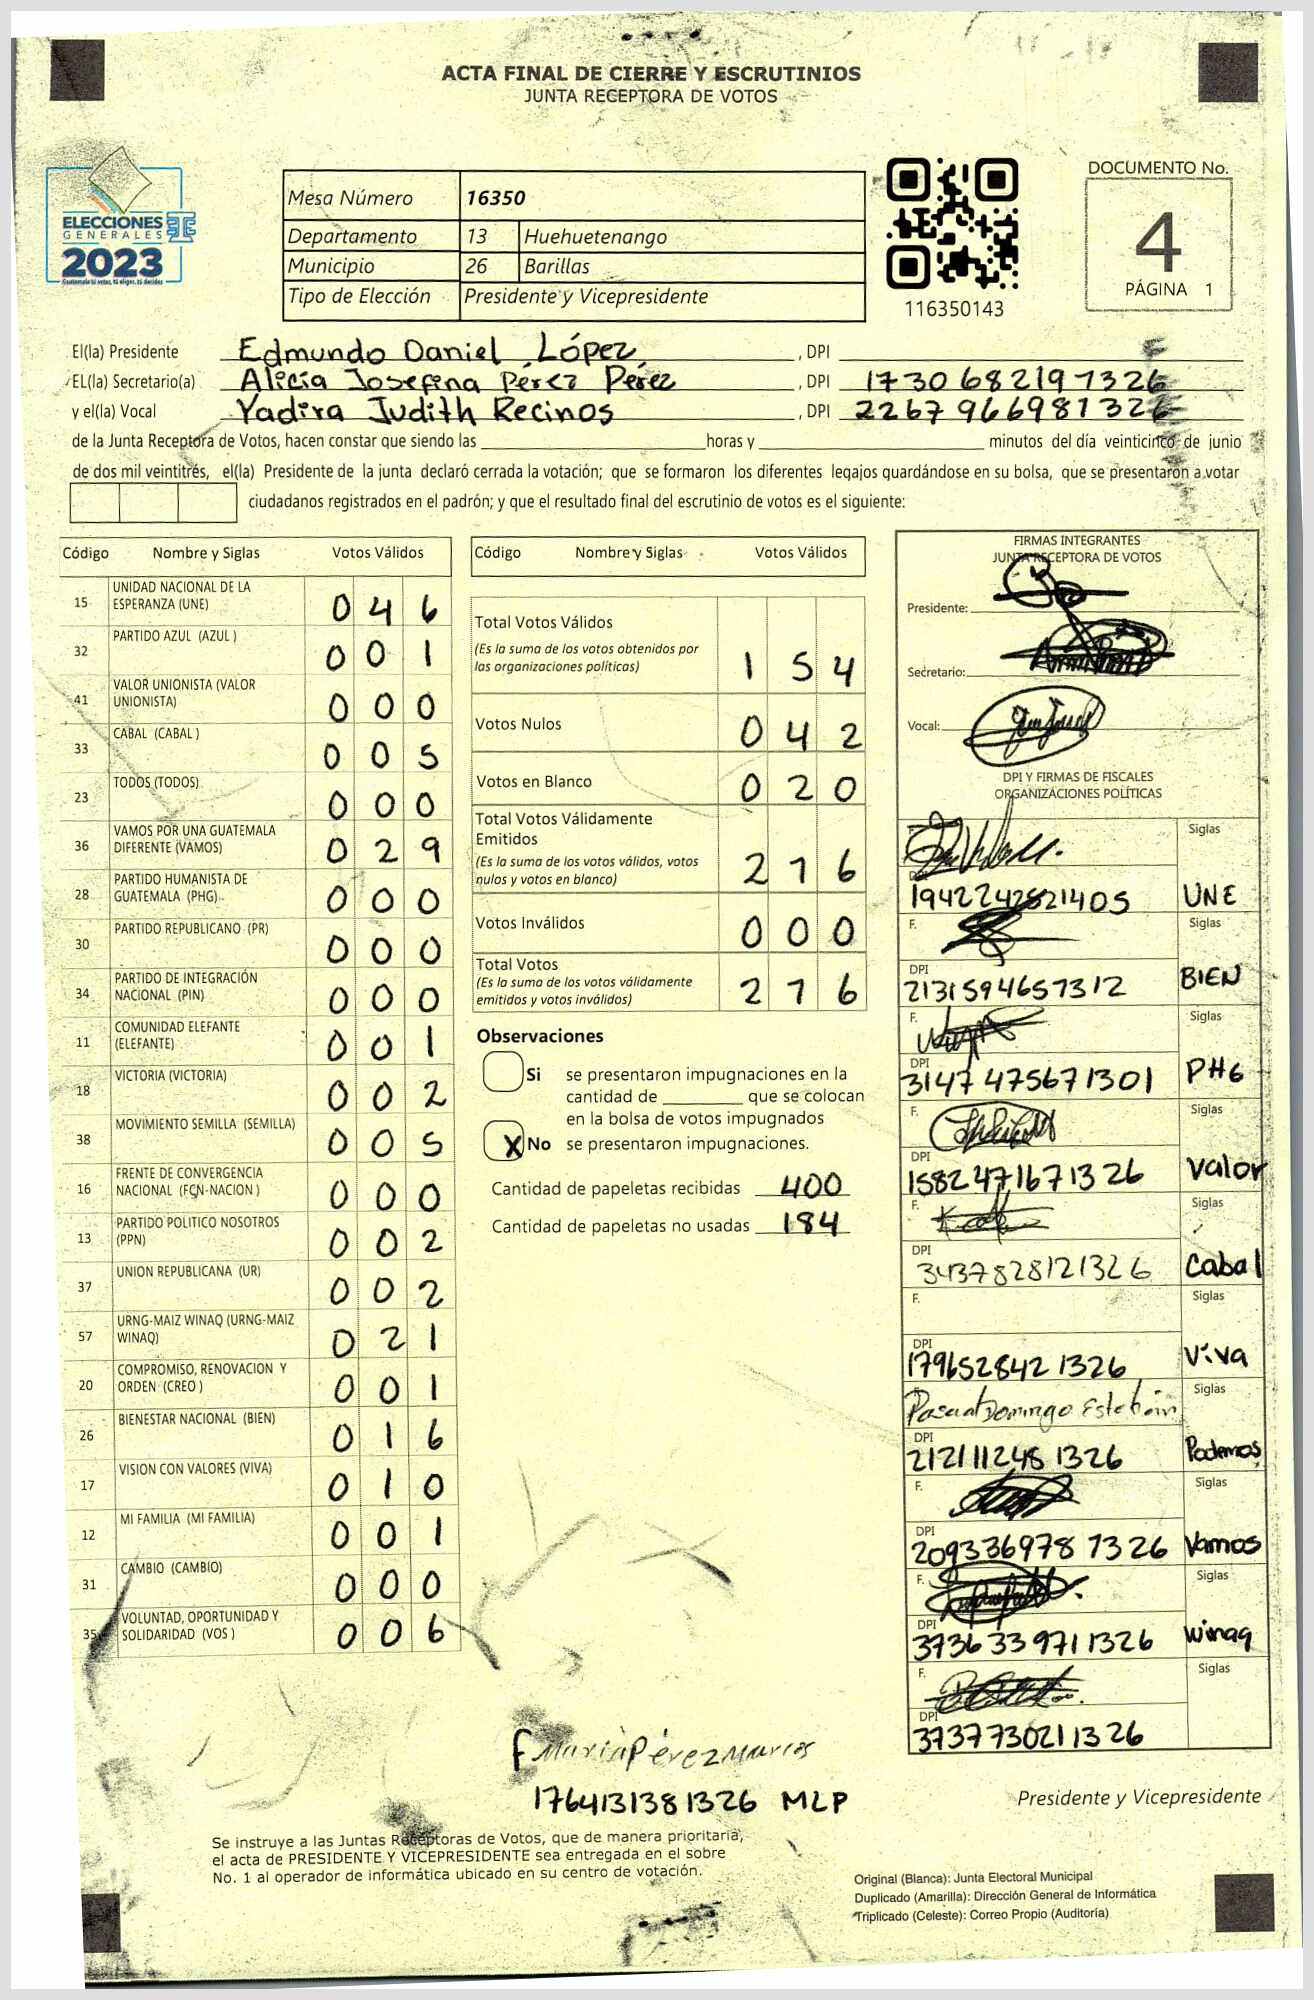 ACTA FINAL DE CIERRE Y ESCRUTINIOS
JUNTA RECEPTORA DE VOTOS
ELECCIONES
GENERALES
2023
Guatemala tú votas, tú eliges, tú decides
Mesa Número 16350
Departamento 13 Huehuetenango
Municipio 26 Barillas
Tipo de Elección Presidente y Vicepresidente
116350143
DOCUMENTO No.
4
PÁGINA 1
El(la) Presidente Edmundo Daniel López , DPI
EL(la) Secretario(a) Alicia Josefina Pérez Pérez , DPI 1730682197326
y el(la) Vocal Yadira Judith Recinos , DPI 2267966981326
de la Junta Receptora de Votos, hacen constar que siendo las horas y minutos del día veinticinco de junio
de dos mil veintitrés, el(la) Presidente de la junta declaró cerrada la votación; que se formaron los diferentes legajos guardándose en su bolsa, que se presentaron a votar
ciudadanos registrados en el padrón; y que el resultado final del escrutinio de votos es el siguiente:
Código Nombre y Siglas Votos Válidos
15 UNIDAD NACIONAL DE LA ESPERANZA (UNE) 0 4 6
32 PARTIDO AZUL (AZUL ) 0 0 1
41 VALOR UNIONISTA (VALOR UNIONISTA) 0 0 0
33 CABAL (CABAL ) 0 0 5
23 TODOS (TODOS) 0 0 0
36 VAMOS POR UNA GUATEMALA DIFERENTE (VAMOS) 0 2 9
28 PARTIDO HUMANISTA DE GUATEMALA (PHG) 0 0 0
30 PARTIDO REPUBLICANO (PR) 0 0 0
34 PARTIDO DE INTEGRACIÓN NACIONAL (PIN) 0 0 0
11 COMUNIDAD ELEFANTE (ELEFANTE) 0 0 1
18 VICTORIA (VICTORIA) 0 0 2
38 MOVIMIENTO SEMILLA (SEMILLA) 0 0 5
16 FRENTE DE CONVERGENCIA NACIONAL (FCN-NACION ) 0 0 0
13 PARTIDO POLITICO NOSOTROS (PPN) 0 0 2
37 UNION REPUBLICANA (UR) 0 0 2
57 URNG-MAIZ WINAQ (URNG-MAIZ WINAQ) 0 2 1
20 COMPROMISO, RENOVACION Y ORDEN (CREO ) 0 0 1
26 BIENESTAR NACIONAL (BIEN) 0 1 6
17 VISION CON VALORES (VIVA) 0 1 0
12 MI FAMILIA (MI FAMILIA) 0 0 1
31 CAMBIO (CAMBIO) 0 0 0
35 VOLUNTAD, OPORTUNIDAD Y SOLIDARIDAD (VOS ) 0 0 6
Código Nombre y Siglas Votos Válidos
Total Votos Válidos
(Es la suma de los votos obtenidos por
las organizaciones políticas) 1 5 4
Votos Nulos 0 4 2
Votos en Blanco 0 2 0
Total Votos Válidamente
Emitidos
(Es la suma de los votos válidos, votos
nulos y votos en blanco) 2 1 6
Votos Inválidos 0 0 0
Total Votos
(Es la suma de los votos válidamente
emitidos y votos inválidos) 2 1 6
Observaciones
Si se presentaron impugnaciones en la
cantidad de que se colocan
en la bolsa de votos impugnados
X No se presentaron impugnaciones.
Cantidad de papeletas recibidas 400
Cantidad de papeletas no usadas 184
FIRMAS INTEGRANTES
JUNTA RECEPTORA DE VOTOS
Presidente:
Secretario:
Vocal:
DPI Y FIRMAS DE FISCALES
ORGANIZACIONES POLÍTICAS
Siglas
UNE
F. Siglas
DPI
2131594657312 BIEN
F. Siglas
DPI
3147475671301 PHG
F. Siglas
DPI
1582471671326 Valor
F. Siglas
DPI
3437828121326 Cabal
F. Siglas
DPI
1796528421326 Viva
Siglas
DPI
2121112481326 Podemos
F. Siglas
DPI
2093369781326 Vamos
F. Siglas
DPI
3736339711326 Winaq
F. Siglas
DPI
3737730211326
F María Pérez Marcos
1764131381326 MLP
Presidente y Vicepresidente
Se instruye a las Juntas Receptoras de Votos, que de manera prioritaria,
el acta de PRESIDENTE Y VICEPRESIDENTE sea entregada en el sobre
No. 1 al operador de informática ubicado en su centro de votación.
Original (Blanca): Junta Electoral Municipal
Duplicado (Amarilla): Dirección General de Informática
Triplicado (Celeste): Correo Propio (Auditoría)